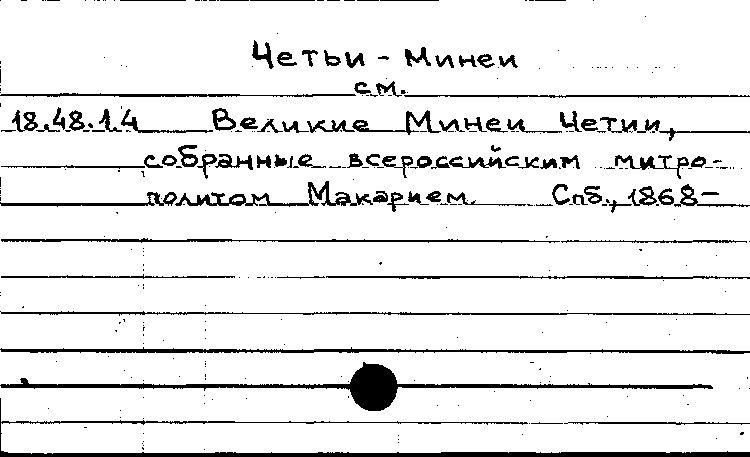 Четьи - Минеи
см.
18.48.1.4 Великие Минеи Четии,
собранные всероссийским митро-
политом Макарием. Спб., 1868-